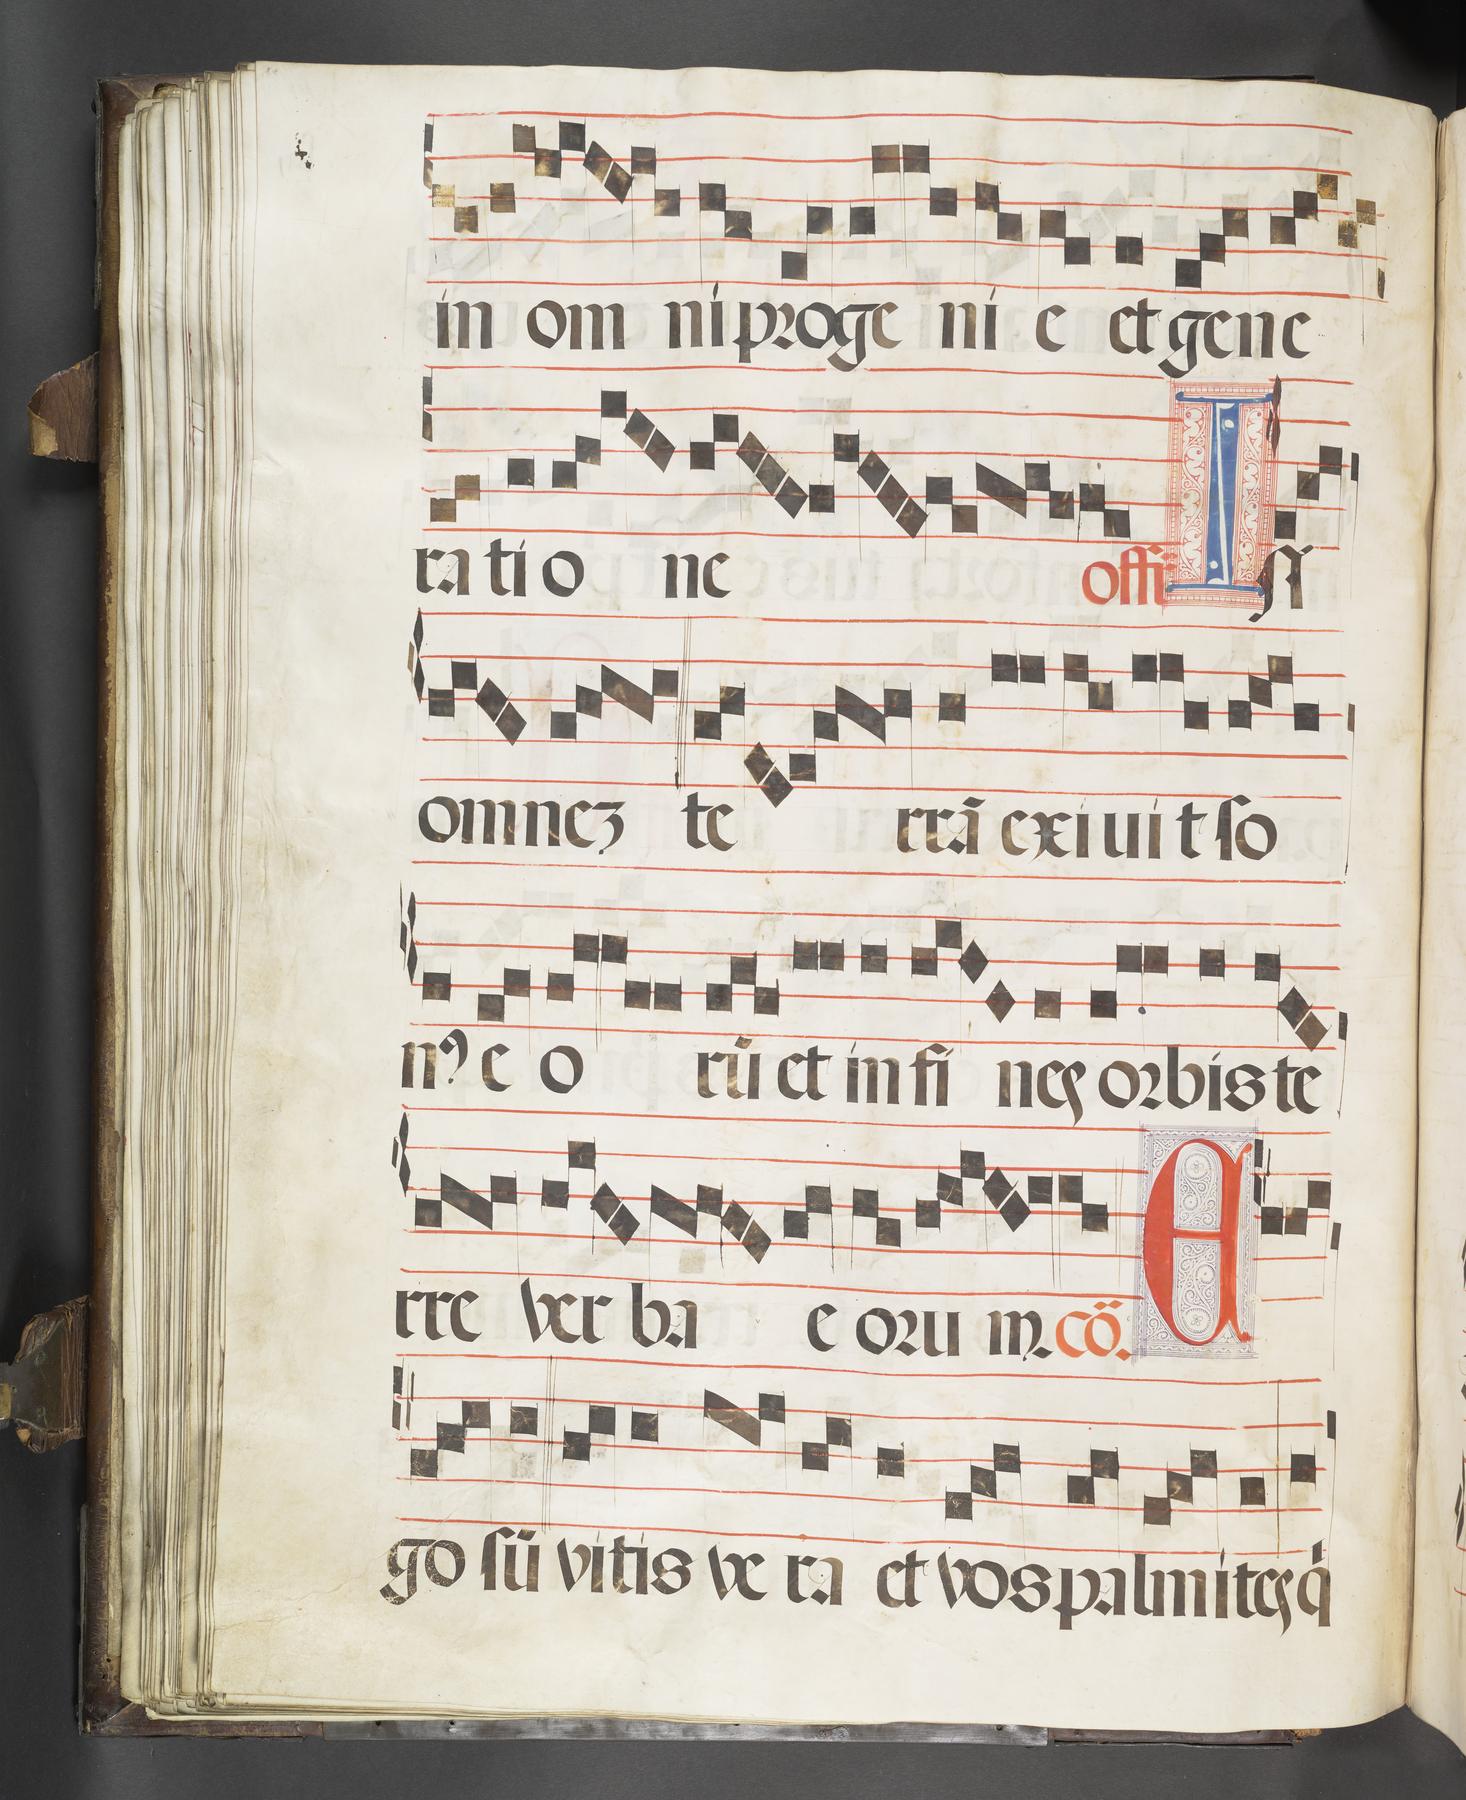 in om ni proge ni e et gene
ra ti o ne offī I ſṙ
omneʒ te rrā exi ui t ſo
nꝰ e o rū et in fi nes orbis te
rre ver ba e oru m. cō. E
go ſū vitis ve ra et vos palmites q̇